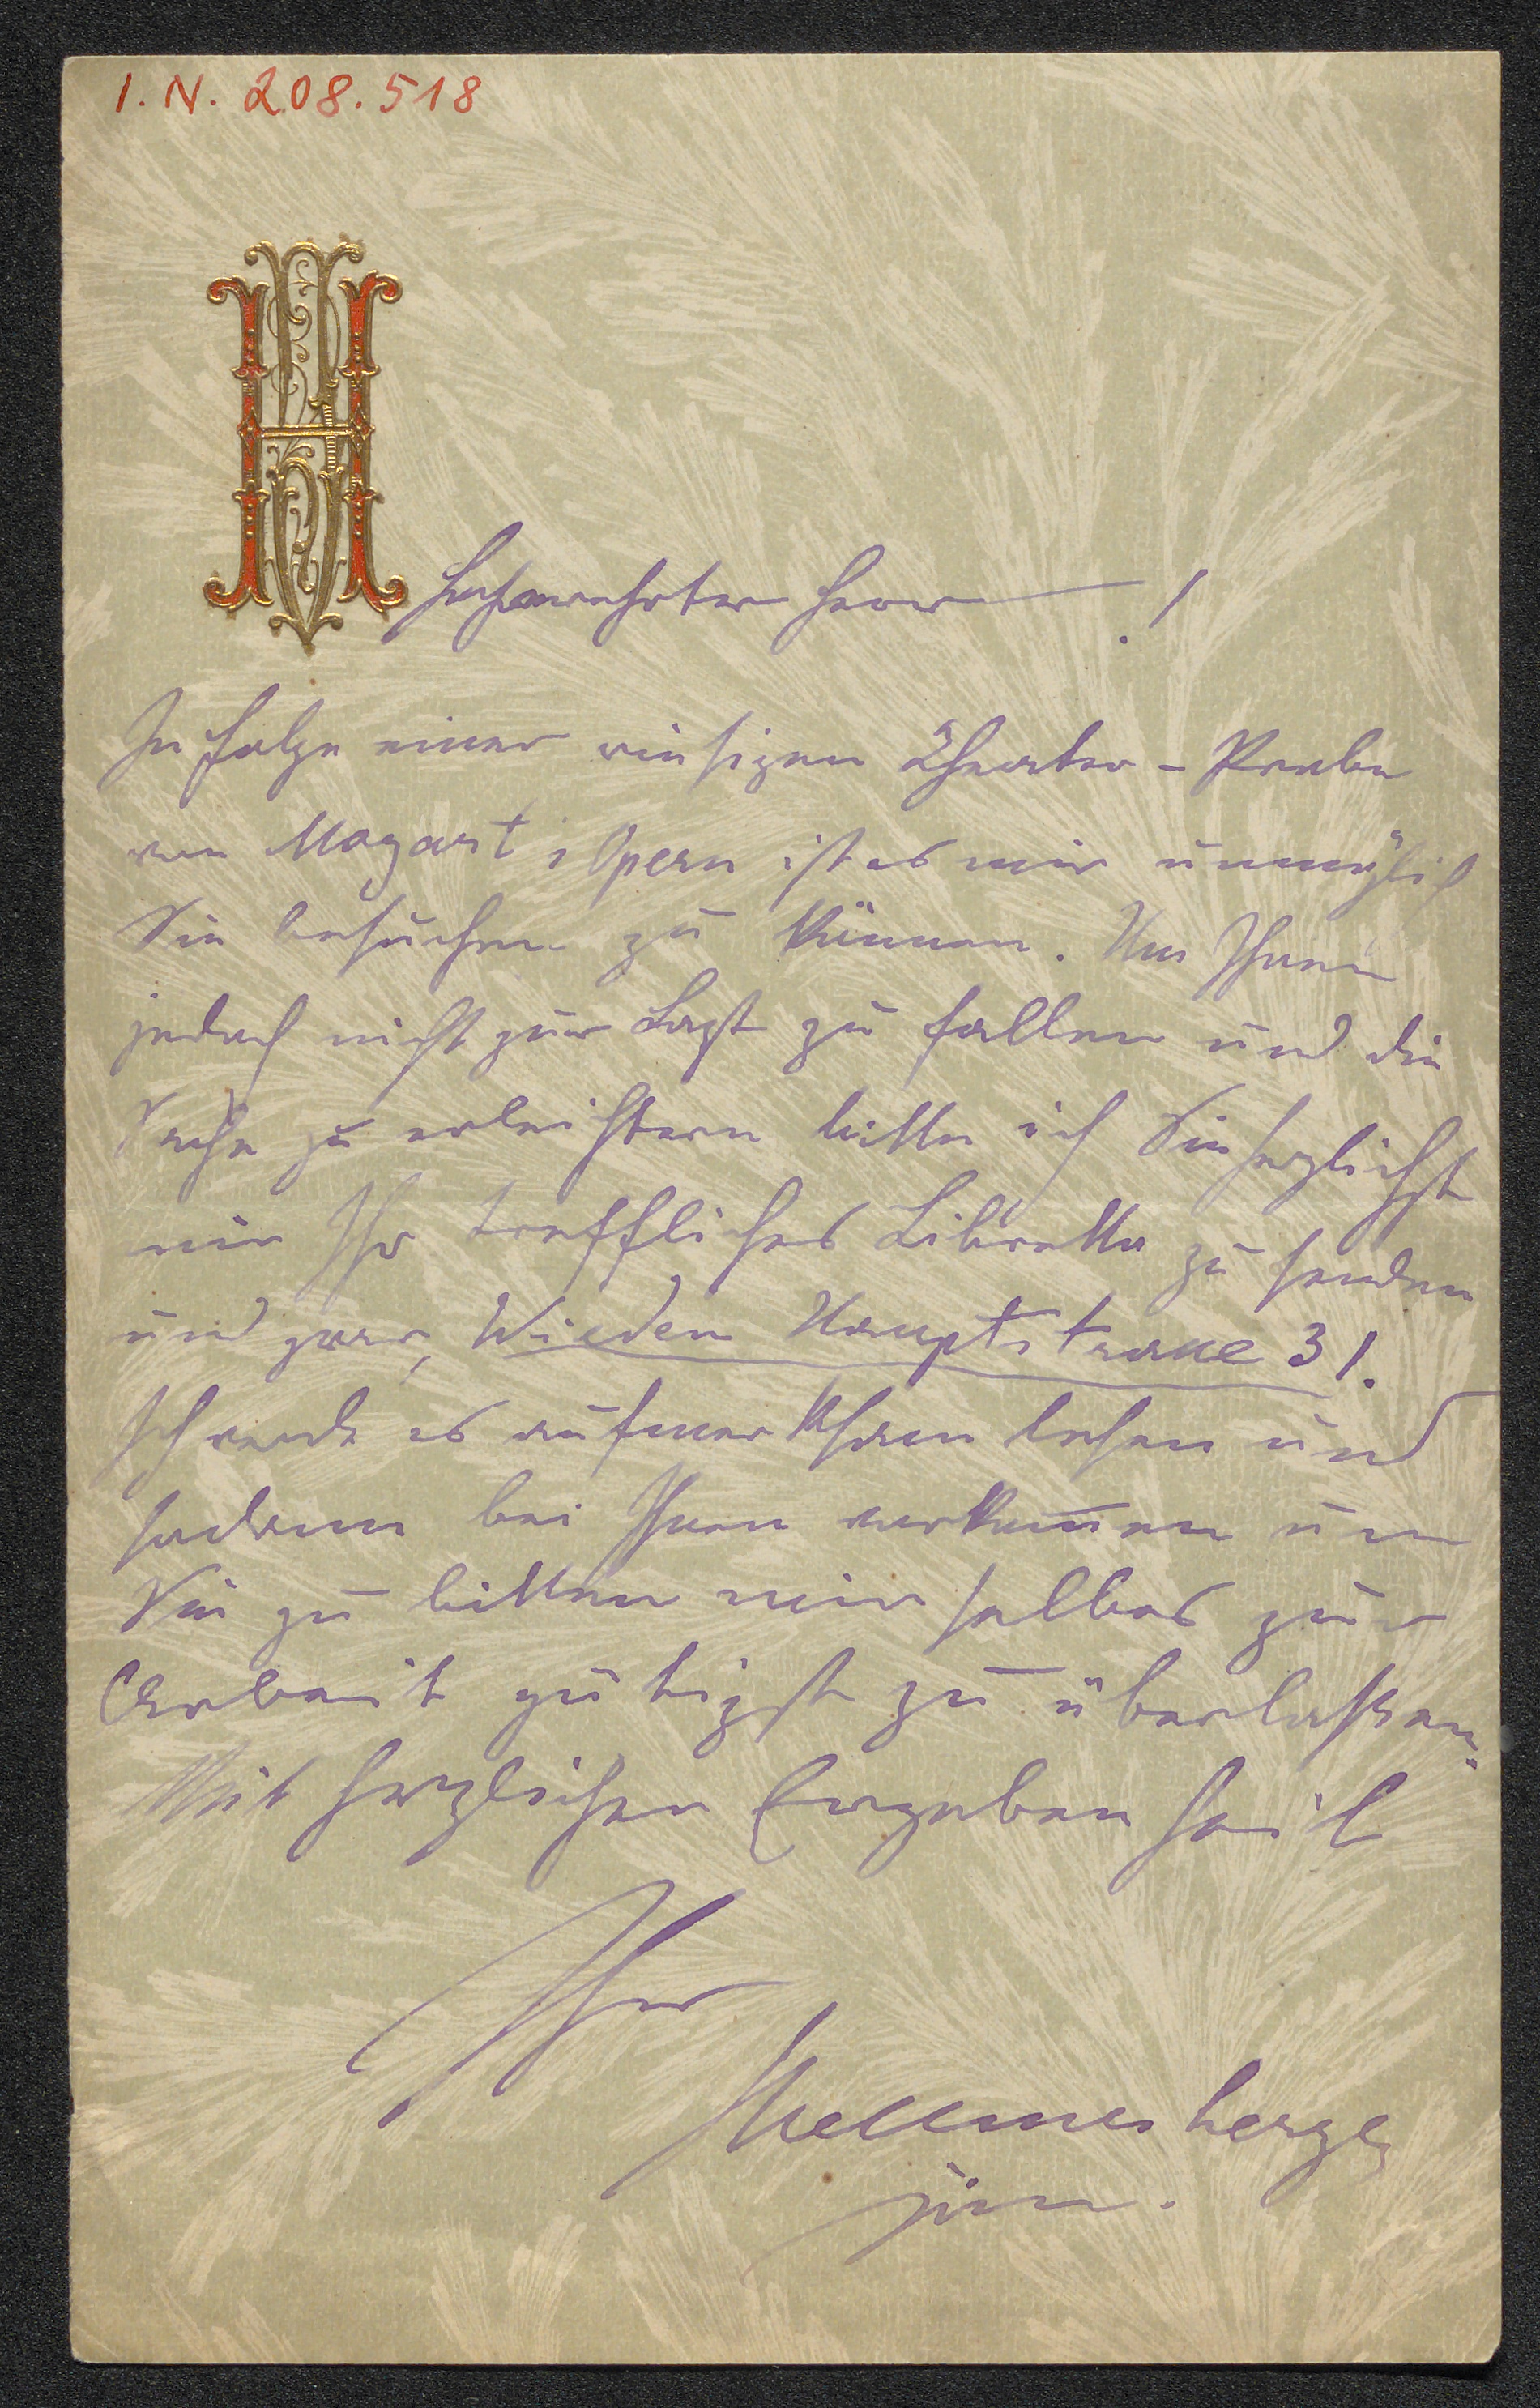 I.N. 208.518
Hochverehrter Herr !
In Folge einer riesigen Theater-Probe
von Mozart's Opern ist es mir unmöglich
Sie besuchen zu können. Um Ihnen
jedoch nicht zur Last zu fallen und die
Sache zu erleichtern bitte ich Sie herzlichst
mir Ihr treffliches Libretto zu senden
und zwar, Wieden Hauptstrasse 31.
Ich werde es aufmerksam lesen und
sodann bei Ihnen vorkom̅en um
Sie zu bitten mir selbes zur
Arbeit gütigst zu überlassen.
Mit herzlicher Ergebenheit
Ihr
Hellmesberger
jun.